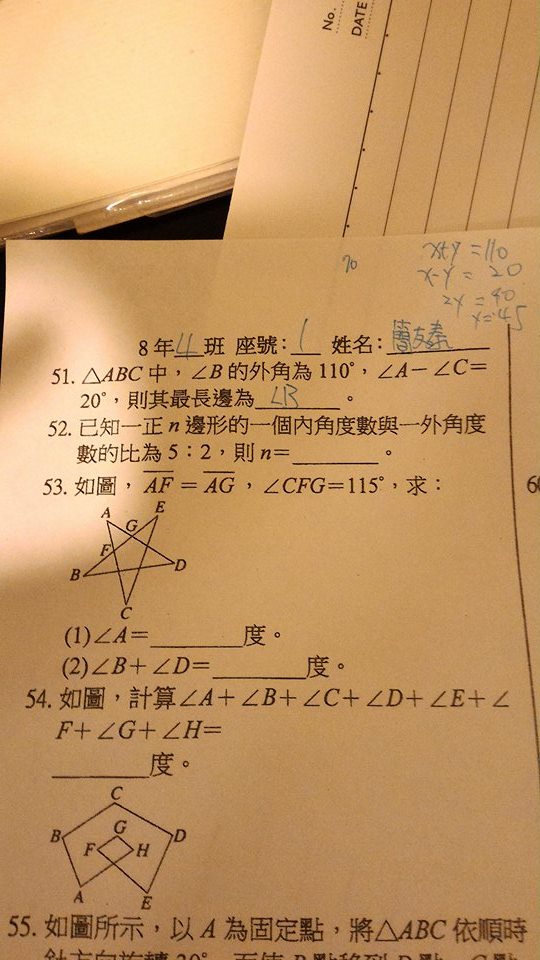 No.
DATE
70
x+y=110
y-x=20
2y=90
y=45
8年4班 座號:1 姓名:
51. △ABC 中，∠B 的外角為 110°，∠A－∠C＝
20°，則其最長邊為 ∠B 。
52. 已知一正 n 邊形的一個內角度數與一外角度
數的比為 5：2，則 n＝________。
53. 如圖，AF＝AG，∠CFG＝115°，求：
A E
G
F
B D
C
(1)∠A＝________度。
(2)∠B＋∠D＝________度。
54. 如圖，計算∠A＋∠B＋∠C＋∠D＋∠E＋∠
F＋∠G＋∠H＝
________度。
C
B G D
F H
A E
55. 如圖所示，以 A 為固定點，將△ABC 依順時
60